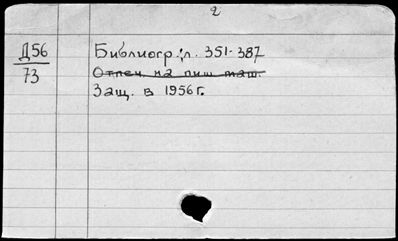 2
Д56
73
Библиогр.: л. 351-387
Отпеч. на пиш. маш.
Защ. в 1956 г.